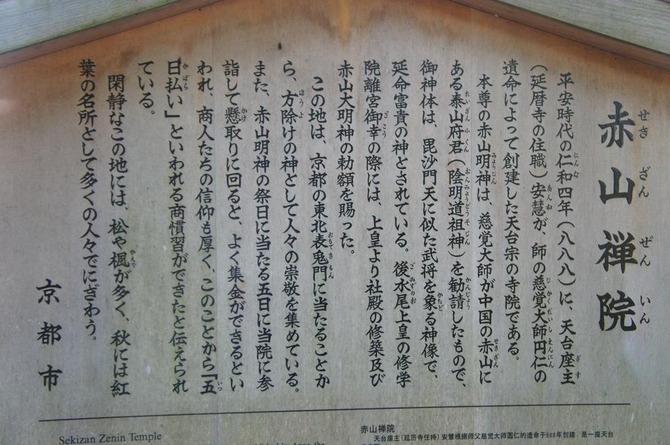 赤山禅院
せきざんぜんいん
平安時代の仁和四年（八八八）に、天台座主
（延暦寺の住職）安慧が、師の慈覚大師円仁の
遺命によって創建した天台宗の寺院である。
本尊の赤山明神は、慈覚大師が中国の赤山に
ある泰山府君（陰陽道祖神）を勧請したもので、
御神体は、毘沙門天に似た武将を象る神像で、
延命富貴の神とされている。後水尾上皇の修学
院離宮御幸の際には、上皇より社殿の修築及び
赤山大明神の勅額を賜った。
この地は、京都の東北表鬼門に当たることか
ら、方除けの神として人々の崇敬を集めている。
また、赤山明神の祭日に当たる五日に当院に参
詣して懸取りに回ると、よく集金ができるとい
われ、商人たちの信仰も厚く、このことから「五
日払い」といわれる商慣習ができたと伝えられ
ている。
閑静なこの地には、松や楓が多く、秋には紅
葉の名所として多くの人々でにぎわう。
京都市
Sekizan Zenin Temple
赤山禅院
天台座主（延历寺住持）安慧根据师父慈觉大师圆仁的遗命于888年创建，是一座天台